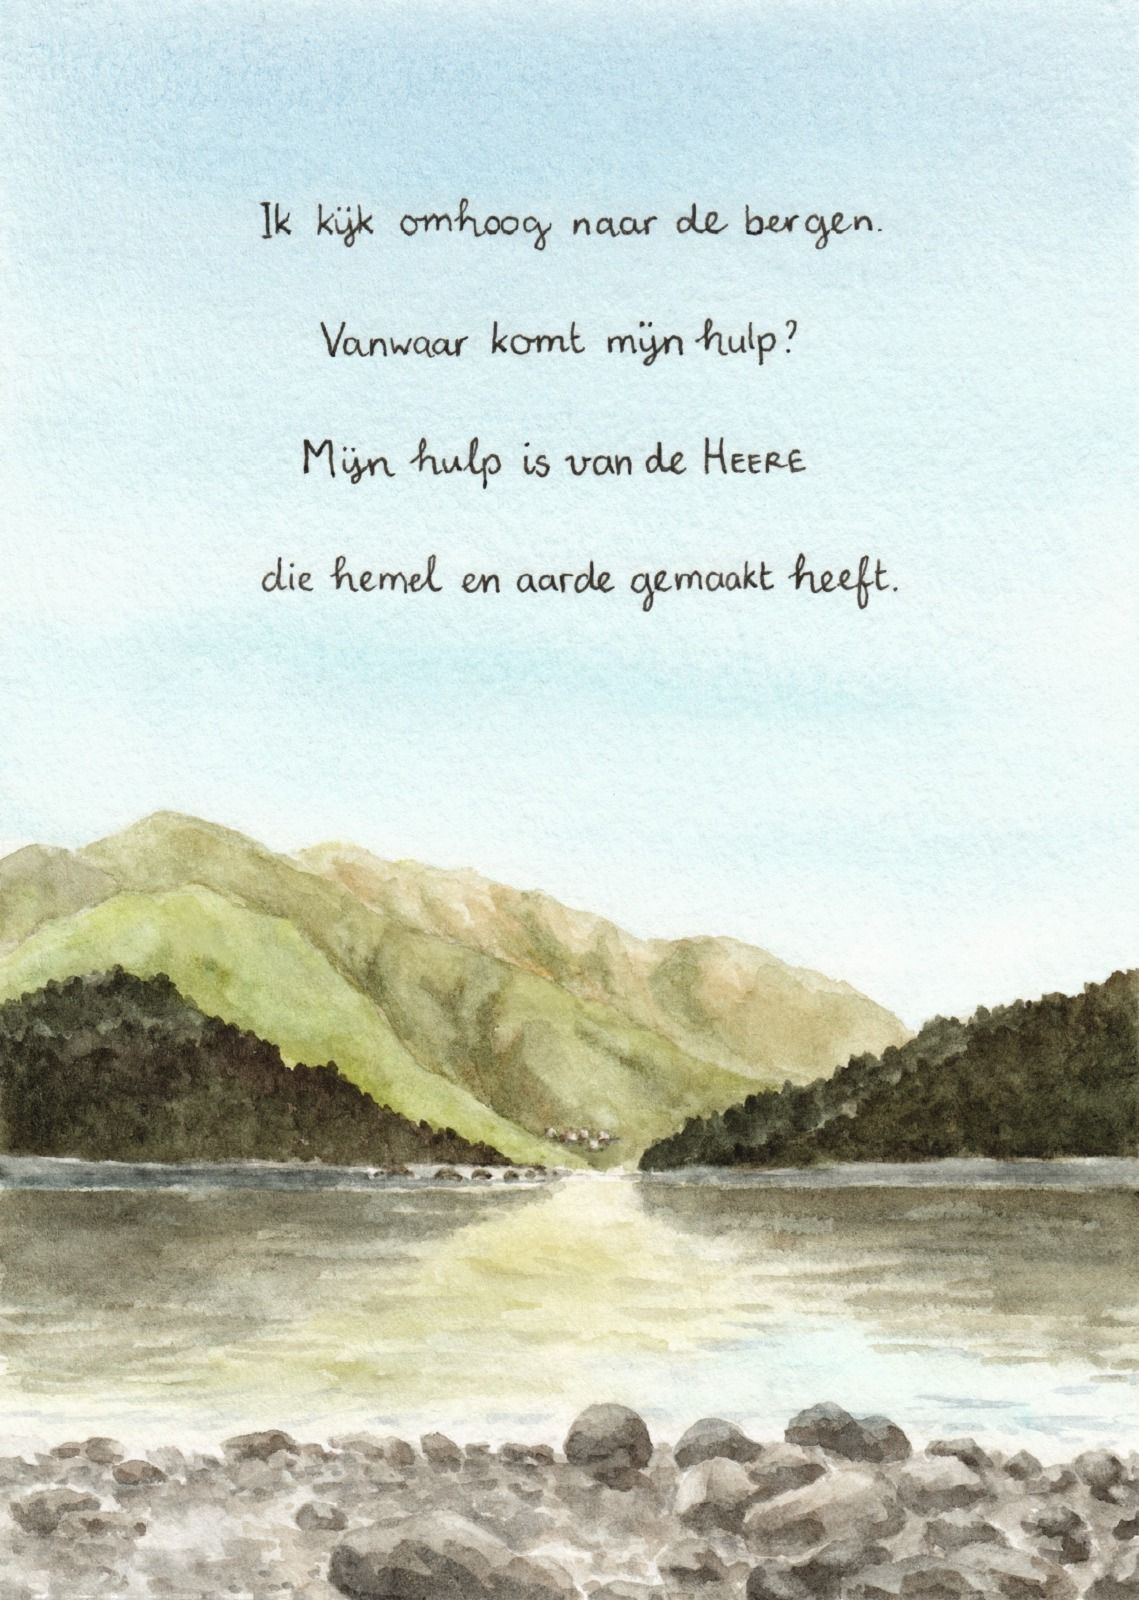 Ik kijk omhoog naar de bergen.
Vanwaar komt mijn hulp?
Mijn hulp is van de HEERE
die hemel en aarde gemaakt heeft.